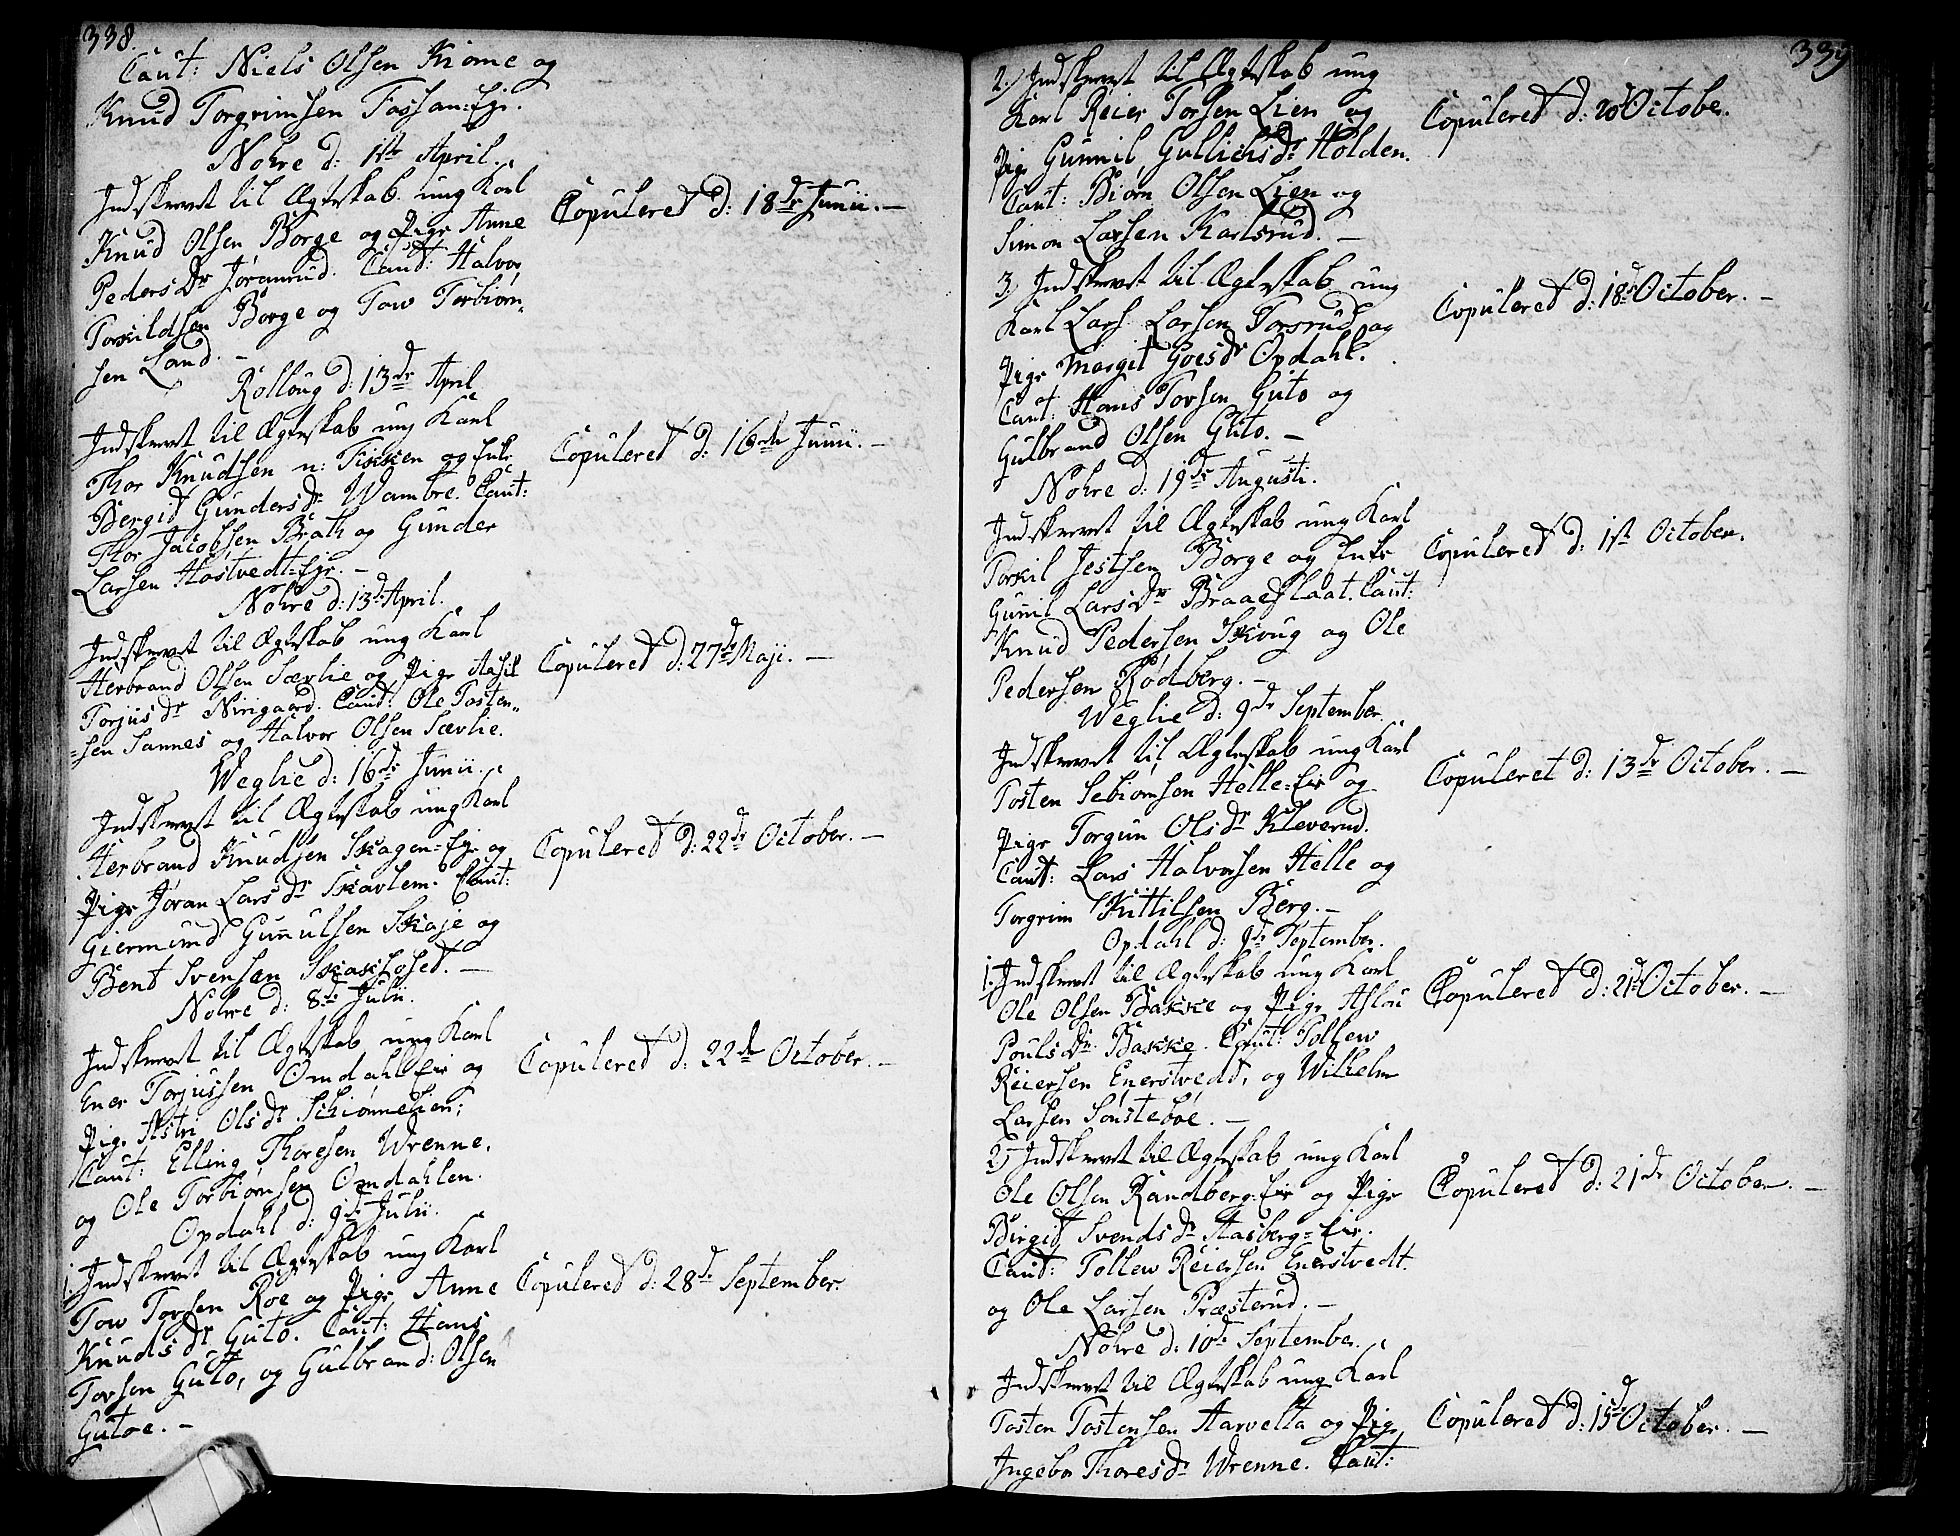 338.
Caut: Niels Olsen Kiome og
Knud Torgrimsen Fossan=Eje.
Nohre d: 1ste April.
Indskrevet til Ægteskab ung Karl
Knud Olsen Borge og Pige Anne
Peders Dr Joranrud. Caut: Halvor
Torkildsen Borge og Tow Torbiörn-
sen Land. –
Copuleret d: 18de Junii. –
Rolloug d: 13de April
Indskrevet til Ægteskab ung Karl
Thor Knudsen n: Fikken og Enke
Bergid Gunders Dr Wambre. Caut:
Thor Jacobsen Brath og Gunder
Larsen Hostvedt=Eje. –
Copuleret d: 16de Junii. –
Nohre d: 13de April.
Indskrevet til Ægteskab ung Karl
Herbrand Olsen Sævlie og Pige Aasil
Torjus Dr Nirigaard. Caut: Ole Tosten-
sen Sannes og Halvor Olsen Sævlie.
Copuleret d: 27de Maji. –
Weglie d: 16de Junii.
Indskrevet til Ægteskab ung Karl
Herbrand Knudsen Skagen=Eje og
Pige Jøran Lars Dr Skavlem. Caut:
Giermund Gunnulsen Skaje og
Bent Svensen Skakshoset. –
Copuleret d: 22de October. –
Nohre d: 8de Julii.
Indskrevet til Ægteskab ung Karl
Ener Torjussen Omdahl Eie og
Pige Astri Ols Dr Schiönnelien;
Caut: Elling Thoresen Wrenne,
og Ole Torbiörnsen Omdahlen.
Copuleret d: 22de October. –
Opdahl d: 9de Julii.
1. Indskrevet til Ægteskab ung Karl
Tow Torsen Roe og Pige Anne
Knuds Dr Guto. Caut: Hans
Torsen Guto, og Gulbrand: Olsen
Gutoe. –
Copuleret d: 28de September.
339
2.) Indskrevet til Ægteskab ung
Karl Reier Torsen Lien og
Pige Gunnil Gullichs Dr Holden.
Caut: Biörn Olsen Lien og
Simon Larsen Karlsrud. –
Copuleret d: 20de October.
3.) Indskrevet til Ægteskab ung
Karl Lars Larsen Torsrud og
Pige Margit Goes Dr Opdahl.
Caut: Hans Torsen Guto og
Gulbrand Olsen Guto. –
Copuleret d: 18de October. –
Nohre d: 19de Augusti.
Indskrevet til Ægteskab ung Karl
Torkil Jestsen Borge og Enke
Gunnil Lars Dr Braaeflaat. Caut:
Knud Pedersen Skoug og Ole
Pedersen Rødberg. –
Copuleret d: 1ste October.
Weglie d: 9de September.
Indskrevet til Ægteskab ung Karl
Tosten Sebiörnsen Helle=Eie og
Pige Torgun Ols Dr Kleverud.
Caut: Lars Halvorsen Helle og
Torgrim Kittilsen Berg. –
Copuleret d: 13de October. –
Opdahl d: 9de September.
1. Indskrevet til Ægteskab ung Karl
Ole Olsen Bakke og Pige Aslou
Pouls Dr Bakke. Caut: Tollew
Reiersen Enerstvedt, og Wilhelm
Larsen Sönsteböe. –
Copuleret d: 21de October. –
2.) Indskrevet til Ægteskab ung Karl
Ole Olsen Randberg=Eie og Pige
Birgit Svends Dr Aasberg=Eie.
Caut: Tollew Reiersen Enerstvedt
og Ole Larsen Præsterud. –
Copuleret d: 21de October. –
Nohre d: 10de September.
Indskrevet til Ægteskab ung Karl
Tosten Tostensen Aarvelta og Pige
Ingebor Thores Dr Wrenne. Caut:
Copuleret d: 15de October. –